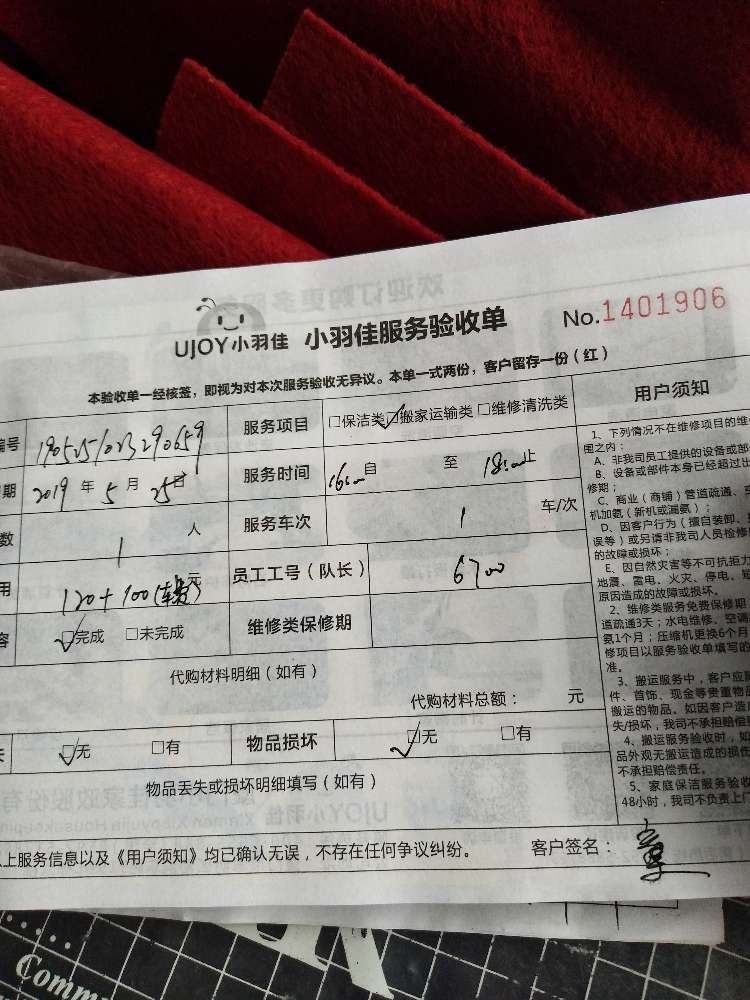 UJOY小羽佳 小羽佳服务验收单 No.1401906
本验收单一经核签，即视为对本次服务验收无异议。本单一式两份，客户留存一份（红）
编号 1905251023290659 服务项目 □保洁类 ☑搬家运输类 □维修清洗类
期 2019 年 5 月 25日 服务时间 16:00 自 至 18:00 止
数 1 人 服务车次 1 车/次
用 120+100(车费) 元 员工工号（队长） 6700
容 ☑完成 □未完成 维修类保修期
代购材料明细（如有）
代购材料总额： 元
失 ☑无 □有 物品损坏 ☑无 □有
物品丢失或损坏明细填写（如有）
上服务信息以及《用户须知》均已确认无误，不存在任何争议纠纷。 客户签名：
用户须知
1、下列情况不在维修项目的维
围之内：
A、非我司员工提供的设备或部
B、设备或部件本身已经超过出
修期；
C、商业（商铺）管道疏通、
机加氨（新机或漏氨）；
D、因客户行为（擅自装卸、
误等）或另请非我司人员检修
的故障或损坏；
E、因自然灾害等不可抗拒力
地震、雷电、火灾、停电、
原因造成的故障或损坏。
2、维修类服务免费保修期
道疏通3天；水电维修、空调
氨1个月；压缩机更换6个月
修项目以服务验收单填写的
准。
3、搬运服务中，客户应
件、首饰、现金等贵重物
搬运的物品。如因客户造
失/损坏，我司不承担赔偿
4、搬运服务验收时，如
品外观无搬运造成的损伤
不承担赔偿责任。
5、家庭保洁服务验收
48小时，我司不负责上门
Comm